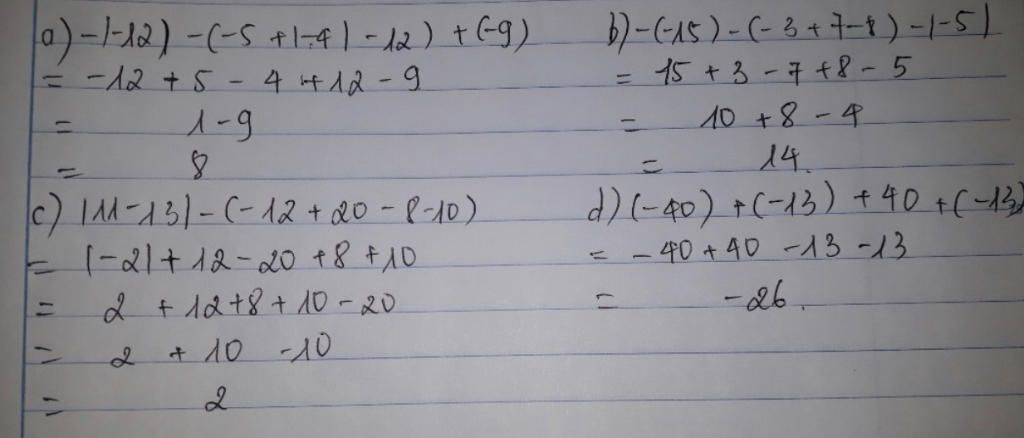 a) -|-12| - (-5 + |-4| - 12) + (-9)
= -12 + 5 - 4 + 12 - 9
= 1 - 9
= 8
b) -(-15) - (-3 + 7 - 8) - |-5|
= 15 + 3 - 7 + 8 - 5
= 10 + 8 - 4
= 14.
c) |11 - 13| - (-12 + 20 - 8 - 10)
= |-2| + 12 - 20 + 8 + 10
= 2 + 12 + 8 + 10 - 20
= 2 + 10 - 10
= 2
d) (-40) + (-13) + 40 + (-13)
= -40 + 40 - 13 - 13
= -26.